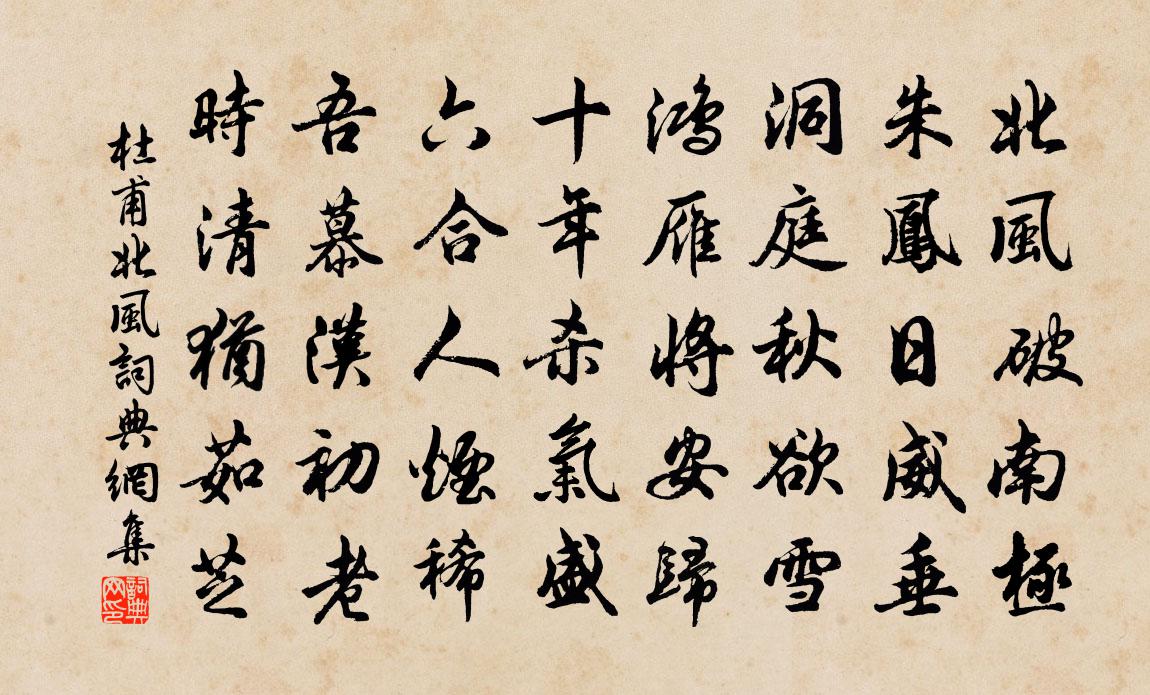 北風破南極
朱鳳日威垂
洞庭秋欲雪
鴻雁將安歸
十年杀氣盛
六合人煙稀
吾慕漢初老
時清猶茹芝
杜甫北風詞典網集
詞典
网印